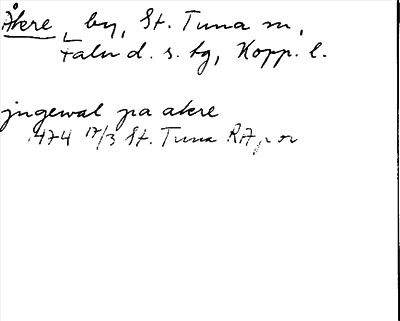 Åkre, by, St. Tuna sn,
Falu d. s. tg, Kopp. l.
jngewal pa akre
1474 17/3 St. Tuna RAp or